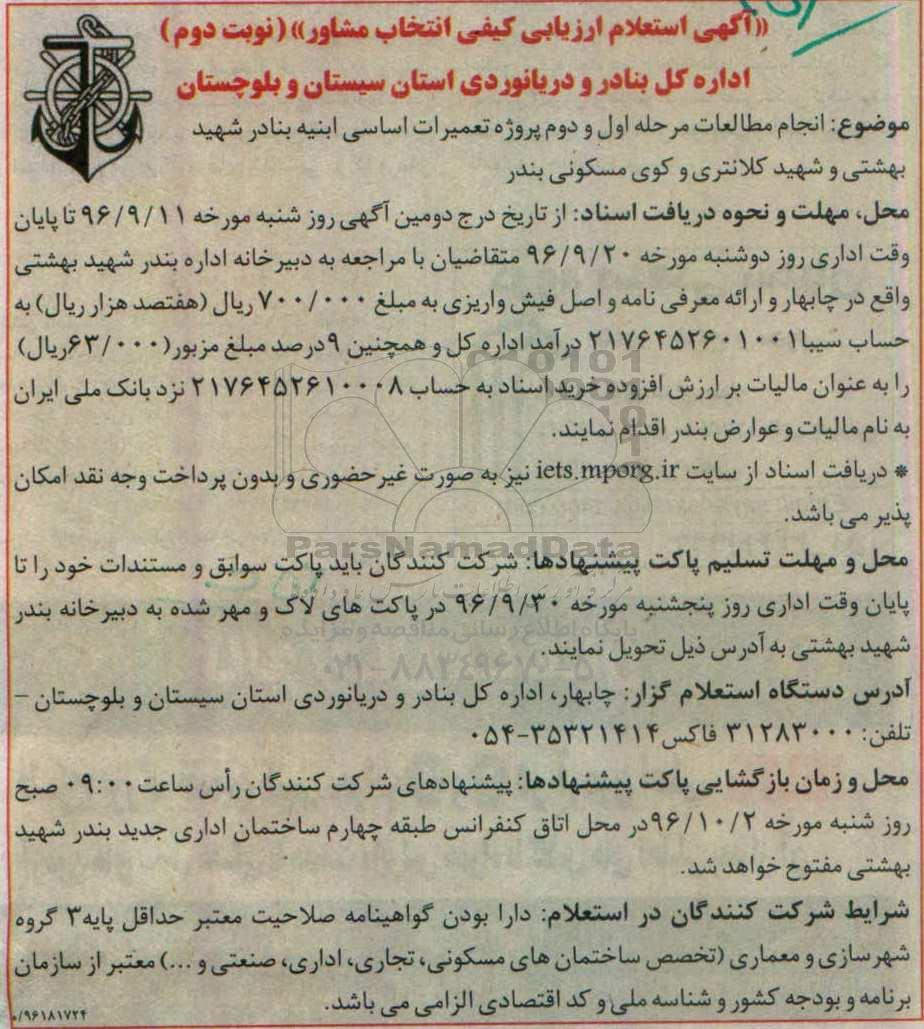 «آگهی استعلام ارزیابی کیفی انتخاب مشاور» (نوبت دوم)
اداره کل بنادر و دریانوردی استان سیستان و بلوچستان
موضوع: انجام مطالعات مرحله اول و دوم پروژه تعمیرات اساسی ابنیه بنادر شهید
بهشتی و شهید کلانتری و کوی مسکونی بندر
محل، مهلت و نحوه دریافت اسناد: از تاریخ درج دومین آگهی روز شنبه مورخه ۹۶/۹/۱۱ تا پایان
وقت اداری روز دوشنبه مورخه ۹۶/۹/۲۰ متقاضیان با مراجعه به دبیرخانه اداره بندر شهید بهشتی
واقع در چابهار و ارائه معرفی نامه و اصل فیش واریزی به مبلغ ۷۰۰/۰۰۰ ریال (هفتصد هزار ریال) به
حساب سیبا ۲۱۷۶۴۵۲۶۰۱۰۰۱ درآمد اداره کل و همچنین ۹درصد مبلغ مزبور(۶۳/۰۰۰ریال)
را به عنوان مالیات بر ارزش افزوده خرید اسناد به حساب ۲۱۷۶۴۵۲۶۱۰۰۰۸ نزد بانک ملی ایران
به نام مالیات و عوارض بندر اقدام نمایند.
* دریافت اسناد از سایت iets.mporg.ir نیز به صورت غیرحضوری و بدون پرداخت وجه نقد امکان
پذیر می باشد.
ParsNamadData
محل و مهلت تسلیم پاکت پیشنهادها: شرکت کنندگان باید پاکت سوابق و مستندات خود را تا
پایان وقت اداری روز پنجشنبه مورخه ۹۶/۹/۳۰ در پاکت های لاک و مهر شده به دبیرخانه بندر
پایگاه اطلاع رسانی مناقصه و مزایده
شهید بهشتی به آدرس ذیل تحویل نمایند.
۰۲۱-۸۸۳۴۹۶۷۰-۵
آدرس دستگاه استعلام گزار: چابهار، اداره کل بنادر و دریانوردی استان سیستان و بلوچستان –
تلفن: ۳۱۲۸۳۰۰۰ فاکس ۳۵۳۲۱۴۱۴-۰۵۴
محل و زمان بازگشایی پاکت پیشنهادها: پیشنهادهای شرکت کنندگان رأس ساعت ۰۹:۰۰ صبح
روز شنبه مورخه ۹۶/۱۰/۲در محل اتاق کنفرانس طبقه چهارم ساختمان اداری جدید بندر شهید
بهشتی مفتوح خواهد شد.
شرایط شرکت کنندگان در استعلام: دارا بودن گواهینامه صلاحیت معتبر حداقل پایه۳ گروه
شهرسازی و معماری (تخصص ساختمان های مسکونی، تجاری، اداری، صنعتی و ...) معتبر از سازمان
برنامه و بودجه کشور و شناسه ملی و کد اقتصادی الزامی می باشد.
۰/۹۶۱۸۱۷۲۴